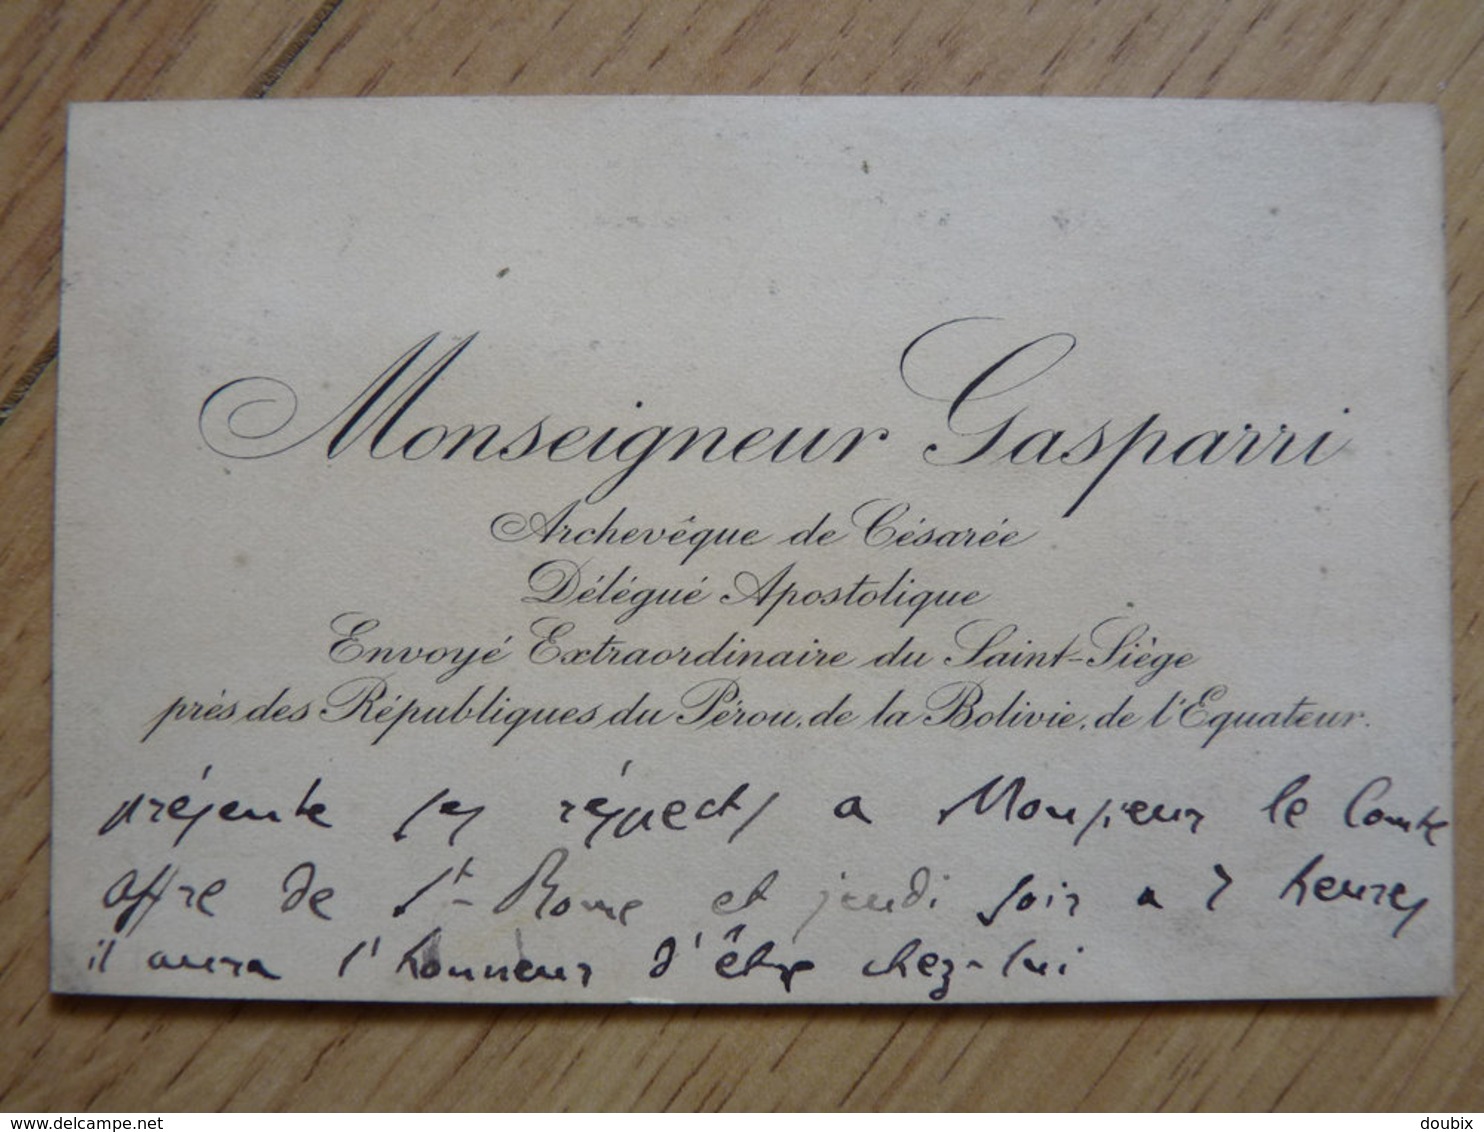 Monseigneur Gasparri
Archevêque de Césarée
Délégué Apostolique
Envoyé Extraordinaire du Saint-Siège
près des Républiques du Pérou, de la Bolivie, de l'Equateur.
présente ses réspects a Monsieur le Comte
offre de St-Rome et jeudi soir a 7 heures
il aura l'honneur d'être chez-lui
www.delcampe.net
doubix